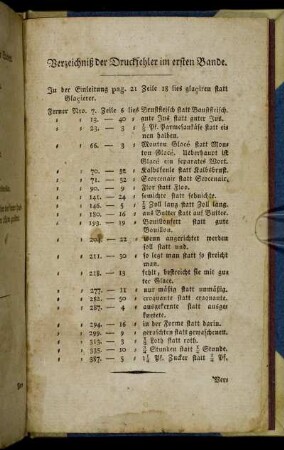 Verzeichniß der Druckfehler im ersten Bande.
In der Einleitung pag. 21 Zeile 18 lies glaziren statt
Glazierer.
Ferner Nro. 7. Zeile 6 lies Brustfleisch statt
" 13. — 40 " gute Jus statt guter Jus.
" 23. — 3 " ½ Pf. Parmesankäse statt ei
nen halben.
" 66. — 3 " Mouton Glacé statt Mou
ton Glacé. Ueberhaupt ist
Glacé ein separates Wort.
" 70. — 32 " Kalbskeule statt Kalbsbrust.
" 71. — 32 "
" 90. — 9 " Flor statt Floo.
" 141. — 24 " semichte statt sehnichte.
" 145. — 2 " ½ Zoll lang statt Zoll lang.
" 180. — 16 " aus Butter statt auf Butter.
" 193. — 19 " Bouillonfett statt gute
Bouillon.
" 204. — 22 " wenn angerichtet werden
soll statt und.
" 211. — 30 " so legt man statt so streicht
man.
" 218. — 13 " fehlt, bestreicht sie mit gu
ter Glace.
" 277. — 11 " nur mäßig statt unmäßig.
" 282. — 50 " croquante statt
" 287. — 4 " auszekernte statt ausge
" 294. — 16 " in der Forme statt darin.
" 299. — 9 " gewaschenen.
" 315. — 3 " Loth statt roth.
" 335. — 10 " Stunden statt Stunde.
" 387. — 5 " 1¼ Pf. Zucker statt Pf.
Ver=